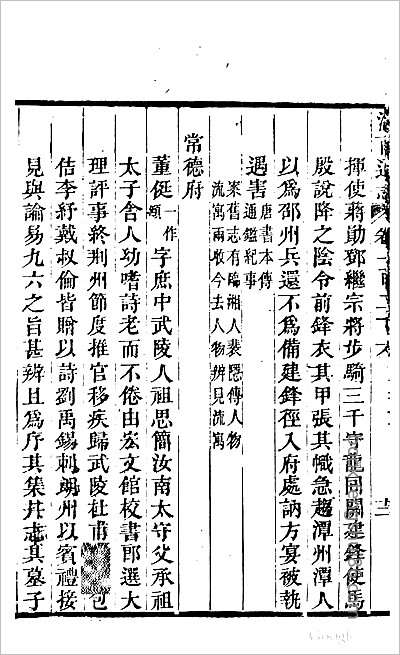 揮使蔣勛鄧繼宗將步騎三千守龍回關建鋒使馬
殷說降之陰令前鋒衣其甲張其幟急趨潭州潭人
以爲邵州兵還不爲備建鋒徑入府處訥方宴被執
遇害唐書本傳
通鑑紀事
案舊志有臨湘人裴隱傳人物
流寓兩收今去人物辨見流寓
常德府
董侹一作
頲字庶中武陵人祖思簡汝南太守父承祖
太子舍人幼嗜詩老而不倦由宏文館校書郎選大
理評事終荆州節度推官移疾歸武陵杜甫包
佶李紓戴叔倫皆贈以詩劉禹錫刺朗州以賓禮接
見與論易九六之旨甚辨且爲序其集幷志其墓子